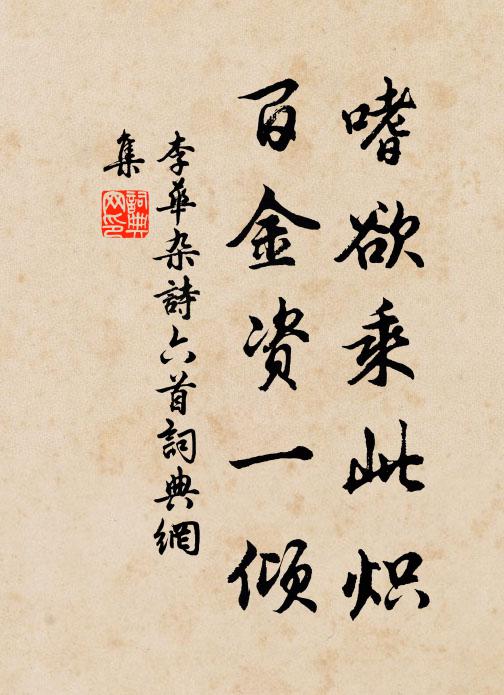 嗜欲乘此炽
百金资一倾
李華杂詩六首詞典網
集
詞典
网印